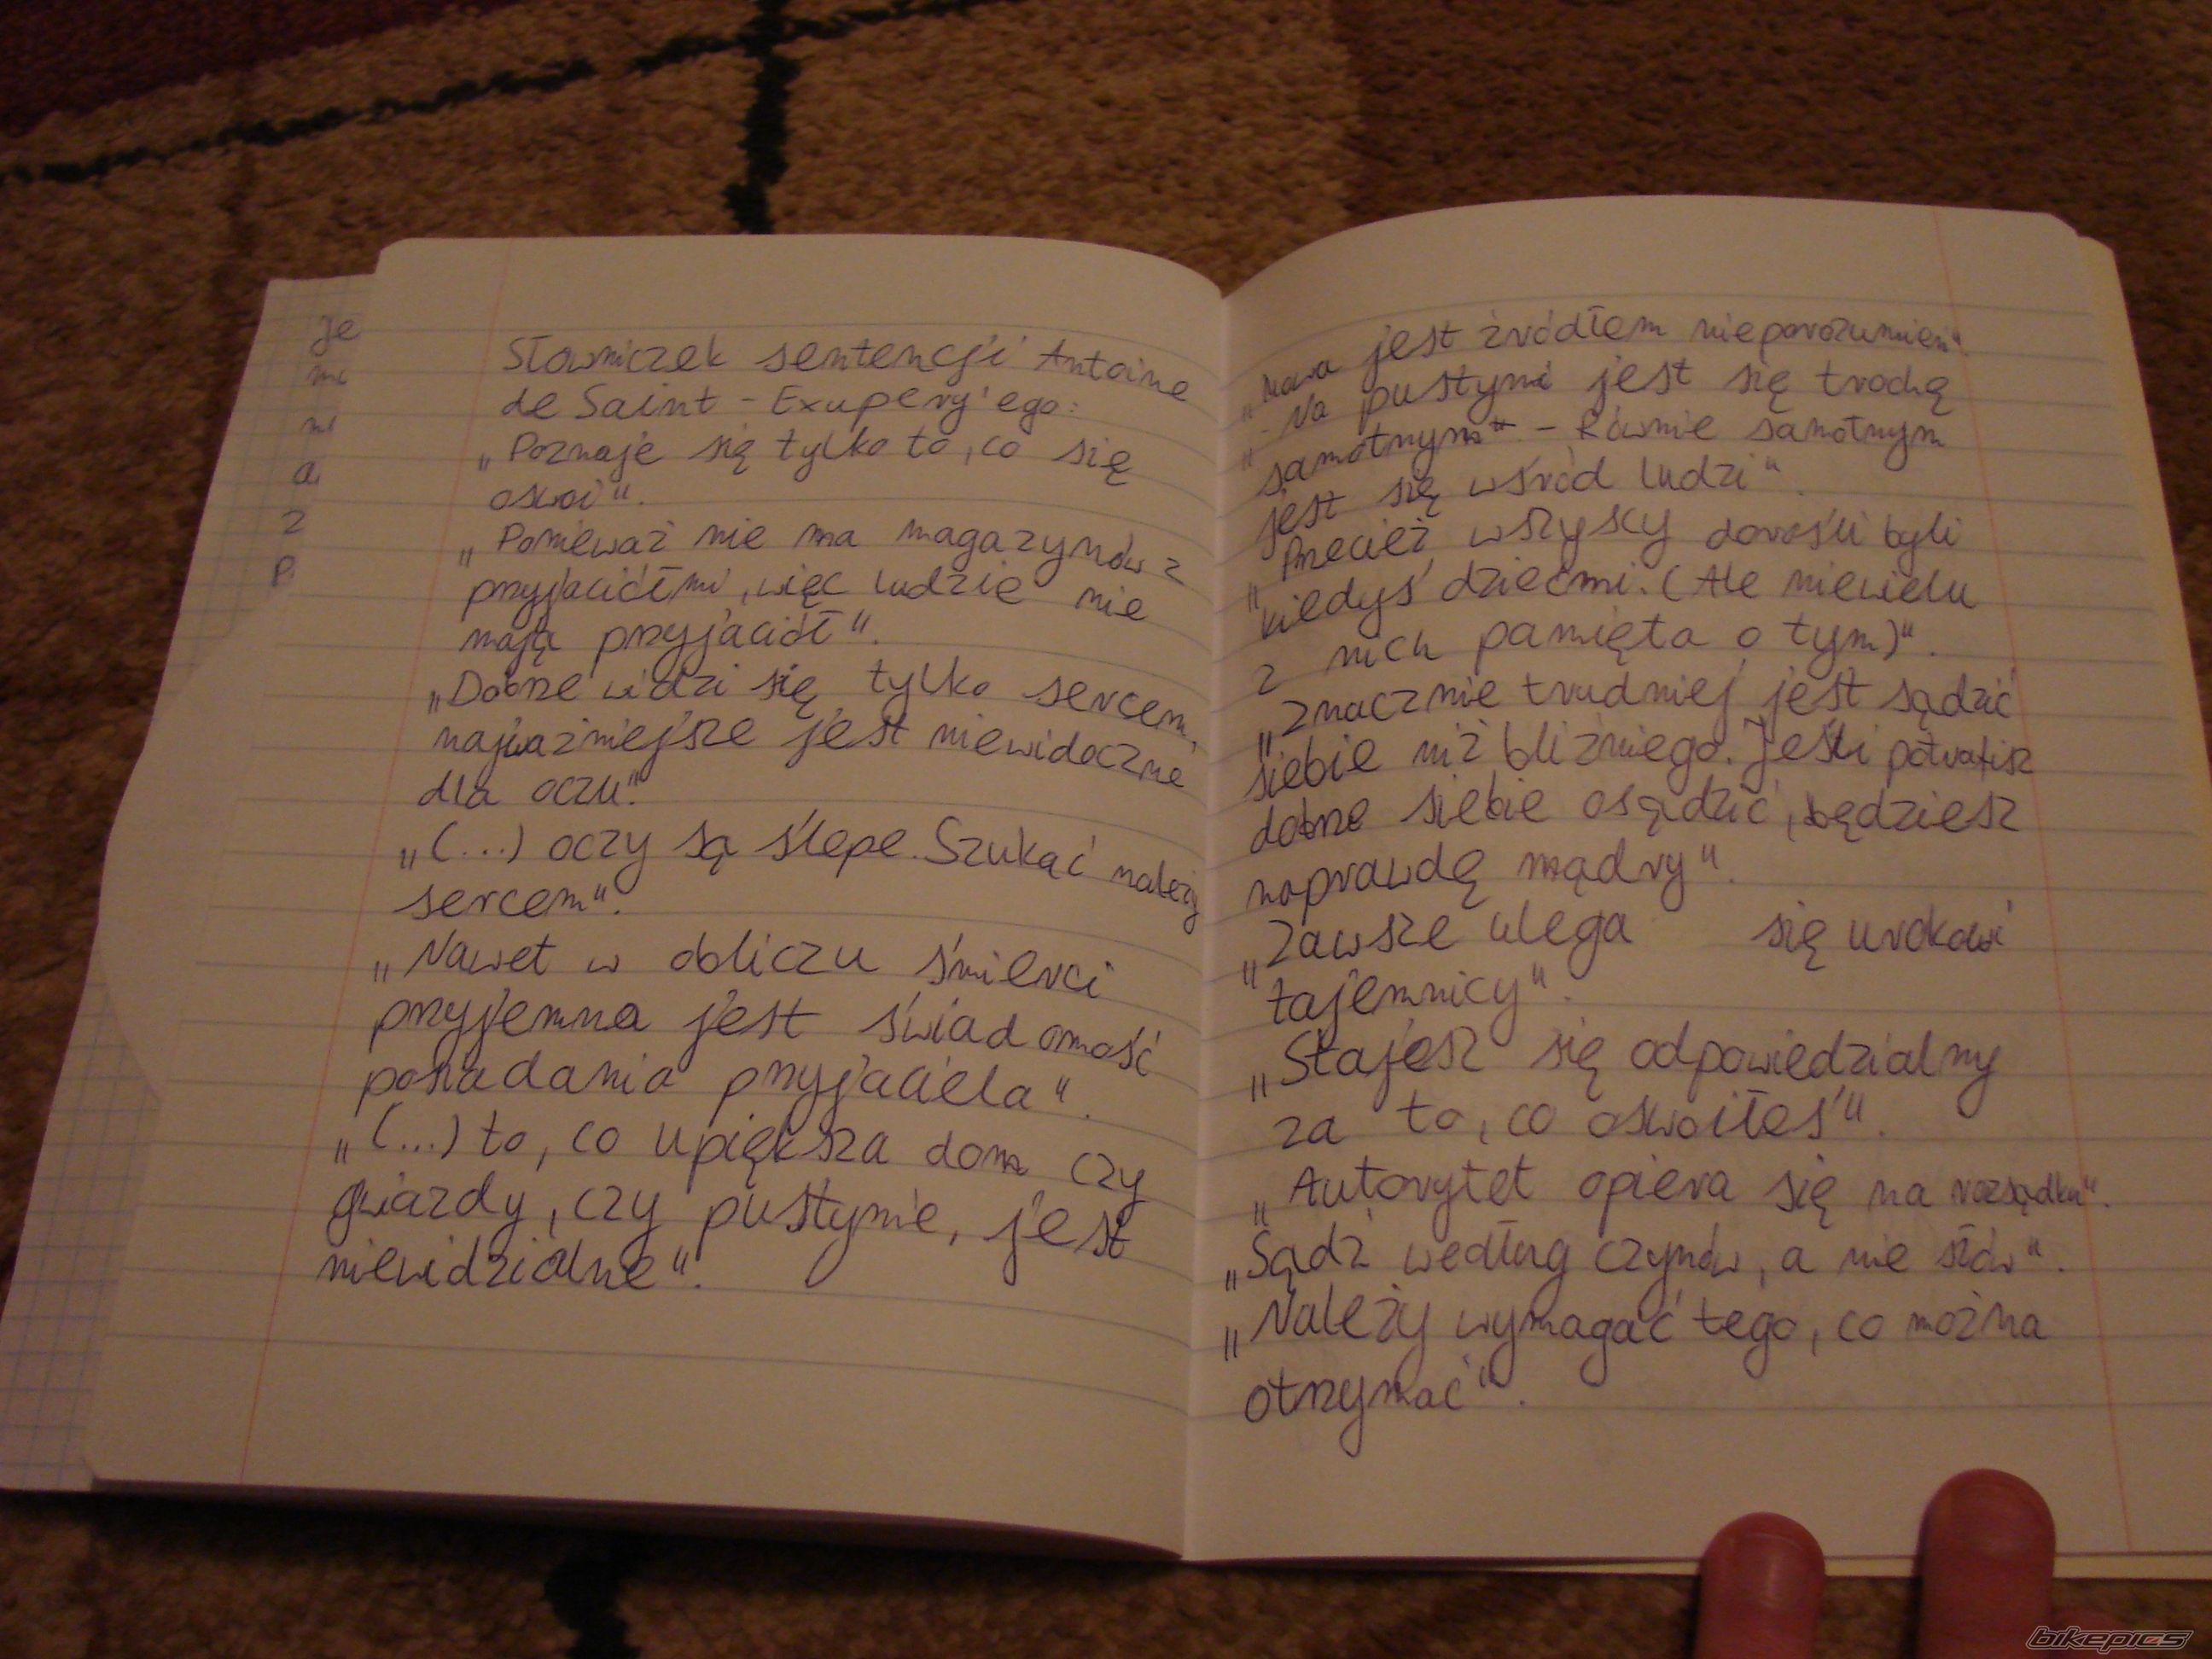 Je
Słowniczek sentencji Antoine
de Saint - Exupery'ego:
„Poznaje się tylko to, co się
oswoi".
„Ponieważ nie ma magazynów z
przyjaciółmi, więc ludzie nie
mają przyjaciół".
„Dobrze widzi się tylko sercem,
najważniejsze jest niewidoczne
dla oczu".
„(...) oczy są ślepe. Szukać należy
sercem".
„Nawet w obliczu śmierci
przyjemna jest świadomość
posiadania przyjaciela".
„(...) to, co upiększa dom czy
gwiazdy, czy pustynie, jest
niewidzialne".
„Mowa jest źródłem nieporozumień".
„- Na pustyni jest się trochę
samotnym" - Równie samotnym
jest się wśród ludzi".
„Przecież wszyscy dorośli byli
kiedyś dziećmi. (Ale niewielu
z nich pamięta o tym)".
„Znacznie trudniej jest sądzić
siebie niż bliźniego. Jeśli potrafisz
dobrze siebie osądzić, będziesz
naprawdę mądry".
„Zawsze ulega się urokowi
tajemnicy".
„Stajesz się odpowiedzialny
za to, co oswoiłeś".
„Autorytet opiera się na rozsądku".
„Sądź według czynów, a nie słów".
„Należy wymagać tego, co można
otrzymać".
bikepics